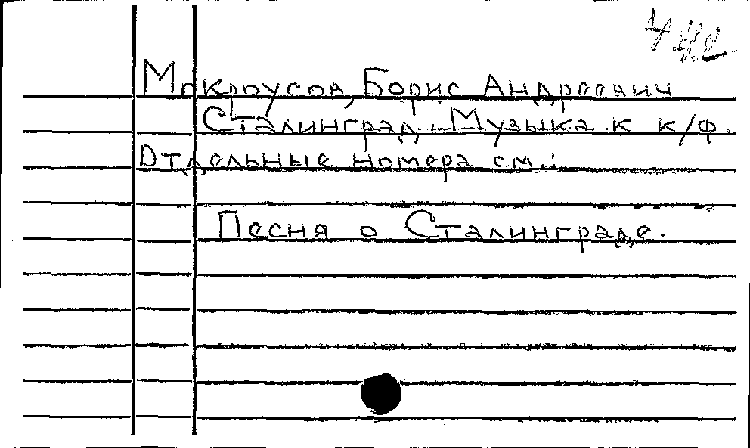 Мокроусов, Борис Андреевич
Сталинград. Музыка к к/ф.
Отдельные номера см.:
Песня о Сталинграде.